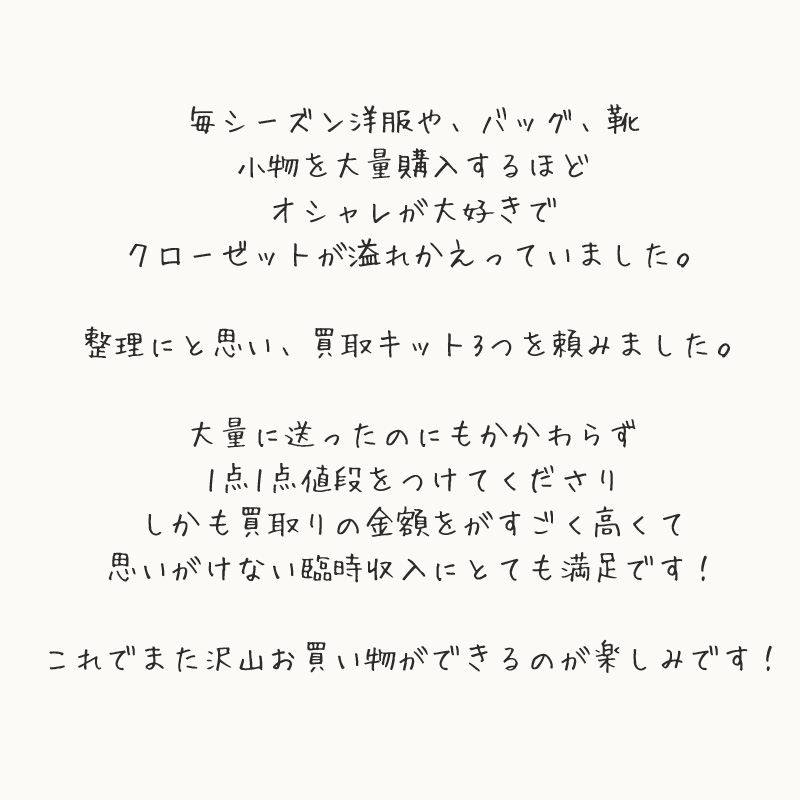 毎シーズン洋服や、バッグ、靴
小物を大量購入するほど
オシャレが大好きで
クローゼットが溢れかえっていました。
整理にと思い、買取キット3つを頼みました。
大量に送ったのにもかかわらず
1点1点値段をつけてくださり
しかも買取りの金額をがすごく高くて
思いがけない臨時収入にとても満足です！
これでまた沢山お買い物ができるのが楽しみです！